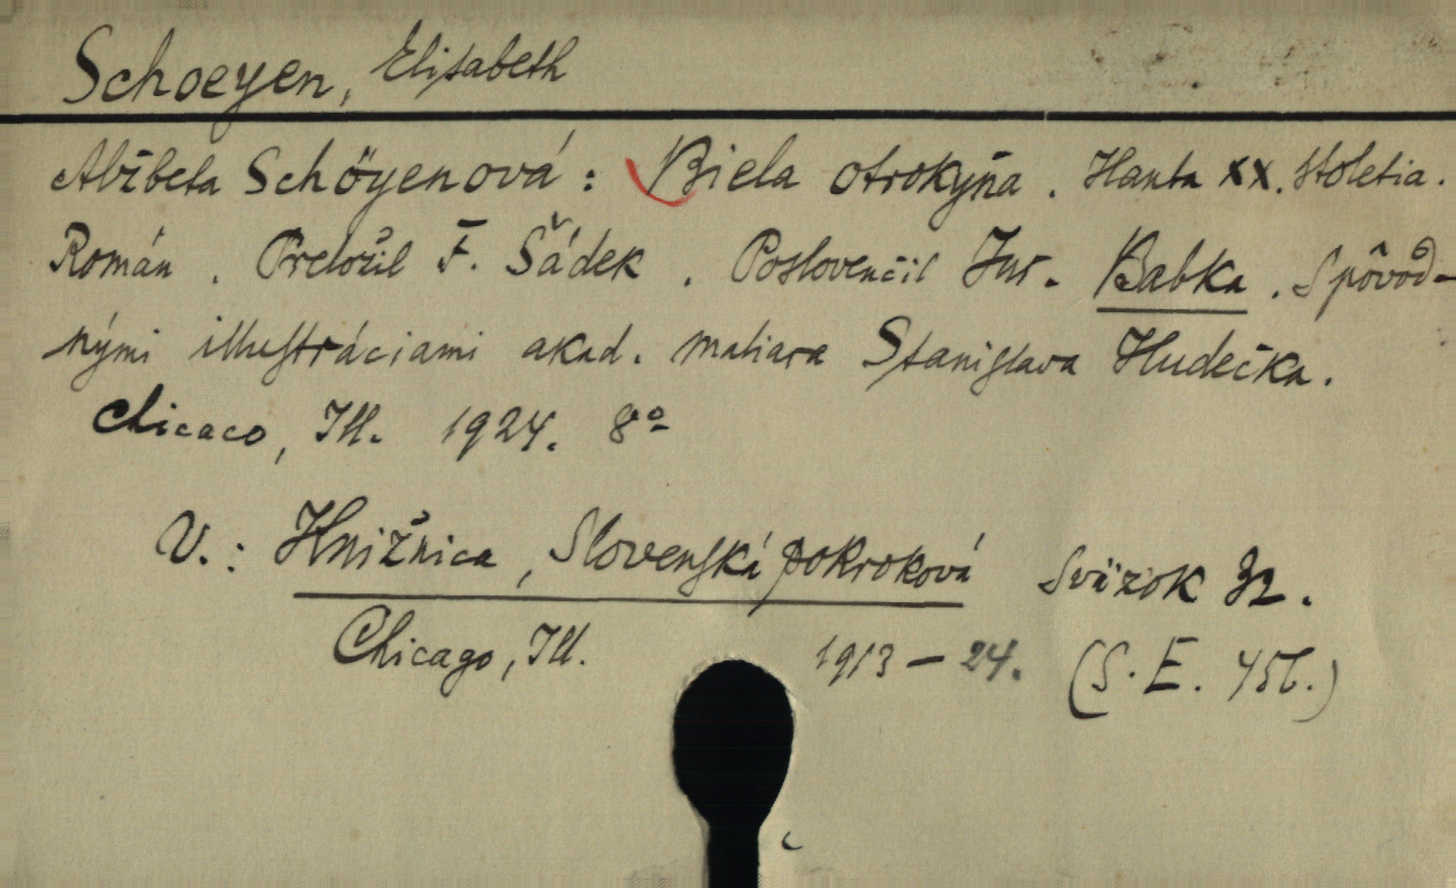 Schoeyen, Elisabeth
Alžbeta Schöyenová: Biela otrokyňa. Hanba XX. stoletia.
Román. Preložil F. Šádek. Poslovenčil Jur. Babka. S pôvod-
nými illustráciami akad. maliara Stanislava Hudečka.
Chicaco, Ill. 1924. 8º
V.: Knižnica, Slovenská pokroková Sväzok 32.
Chicago, Ill. 1913-24. (S. E. 456.)